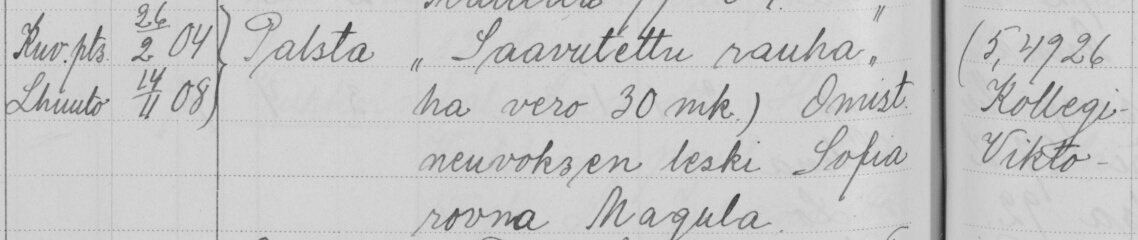 Kuv. pts 26/2 04 } Palsta „Saavutettu rauha„ (5,4926
Lhuuto 14/11 08 ha vero 30 mk.) Omist. Kollegi-
neuvoksen leski Sofia Vikto-
rovna Magula.